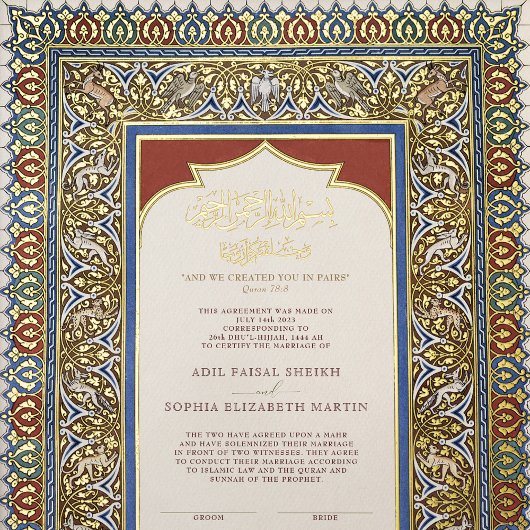 بسم الله الرحمن الرحيم
"AND WE CREATED YOU IN PAIRS"
Quran 78:8
THIS AGREEMENT WAS MADE ON
JULY 14th 2023
CORRESPONDING TO
26th DHU'L-HIJJAH, 1444 AH
TO CERTIFY THE MARRIAGE OF
ADIL FAISAL SHEIKH
and
SOPHIA ELIZABETH MARTIN
THE TWO HAVE AGREED UPON A MAHR
AND HAVE SOLEMNIZED THEIR MARRIAGE
IN FRONT OF TWO WITNESSES. THEY AGREE
TO CONDUCT THEIR MARRIAGE ACCORDING
TO ISLAMIC LAW AND THE QURAN AND
SUNNAH OF THE PROPHET.
GROOM BRIDE